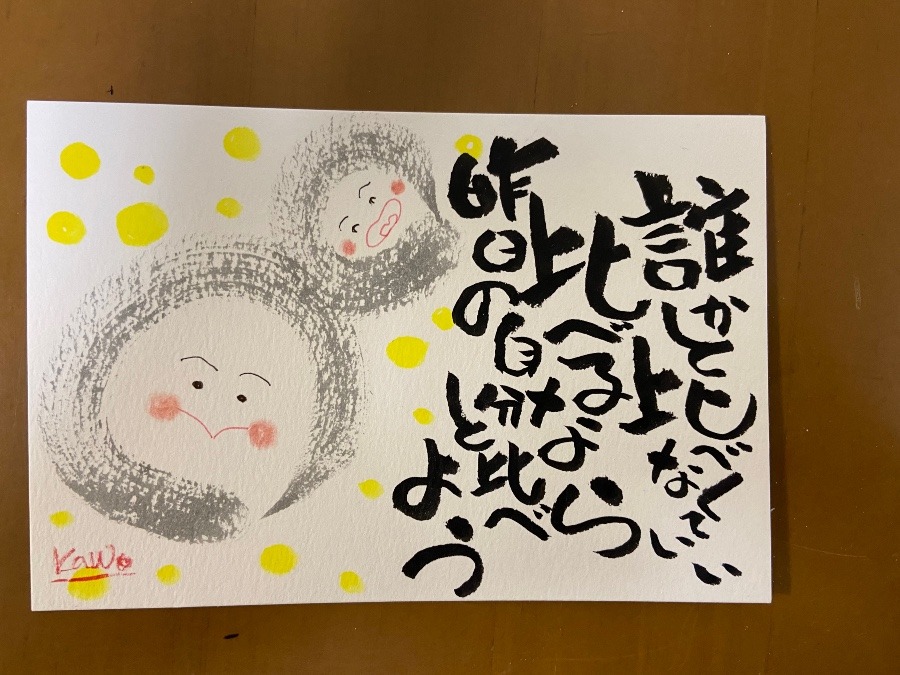 誰かと比べなくていい
比べるなら
昨日の
自分と比べ
よう
Kawo